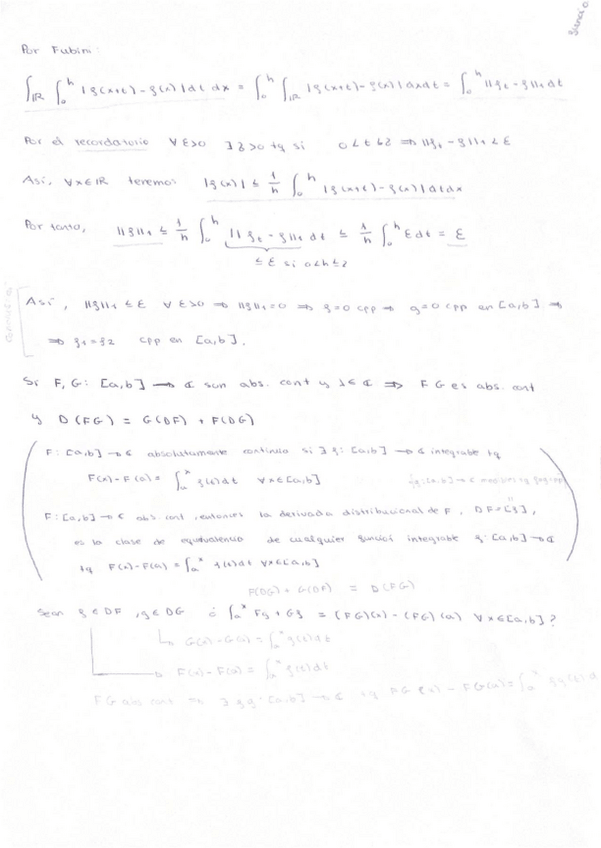 Por Fubini:
∫_ℝ ∫_0^h |f(x+t) - f(x)| dt dx = ∫_0^h ∫_ℝ |f(x+t) - f(x)| dx dt = ∫_0^h ||f_t - f||_1 dt
Por el recordatorio ∀ ε>0 ∃ δ>0 tq si 0<t<δ ⇒ ||f_t - f||_1 < ε
Así, ∀x∈ℝ tenemos |f(x)| ≤ 1/h ∫_0^h |f(x+t) - f(x)| dt dx
Por tanto, ||f||_1 ≤ 1/h ∫_0^h ||f_t - f||_1 dt ≤ 1/h ∫_0^h ε dt = ε
≤ ε si 0<h≤δ
Así, ||f||_1 ≤ ε ∀ ε>0 ⇒ ||f||_1 = 0 ⇒ f=0 cpp ⇒ g=0 cpp en [a,b] ⇒
⇒ f_1 = f_2 cpp en [a,b].
Si F, G: [a,b] → ℂ son abs. cont y λ∈ℂ ⇒ FG es abs. cont
y D(FG) = G(DF) + F(DG)
F: [a,b] → ℂ absolutamente continua si ∃ f: [a,b] → ℂ integrable tq
F(x) - F(a) = ∫_a^x f(t) dt ∀x∈[a,b]
F: [a,b] → ℂ abs cont, entonces la derivada distribucional de F, DF = [f],
es la clase de equivalencia de cualquier función integrable f: [a,b] → ℂ
tq F(x) - F(a) = ∫_a^x f(t) dt ∀x∈[a,b]
F(DG) + G(DF) = D(FG)
Sean f ∈ DF, g ∈ DG ¿ ∫_a^x Fg + Gf = (FG)(x) - (FG)(a) ∀x∈[a,b]?
↳ G(x) - G(a) = ∫_a^x g(t) dt
→ F(x) - F(a) = ∫_a^x f(t) dt
FG abs cont ⇒ ∃ fg: [a,b] → ℂ tq FG(x) - FG(a) = ∫_a^x fg(t) d